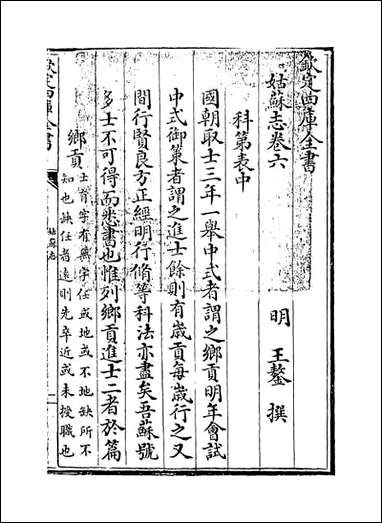 欽定四庫全書
姑蘇志卷六
明 王鏊 撰
科第表中
國朝取士三年一舉中式者謂之鄉貢明年會試
中式御策者謂之進士餘則有歳貢每歳行之又
間行賢良方正經明行脩等科法亦盡矣吾蘇號
多士不可得而悉書也惟列鄉貢進士二者於篇
鄉貢
士有字有無字任或地或不地缺所不
知也缺任者遠則先卒近或未授職也
欽定四庫全書
姑蘇志